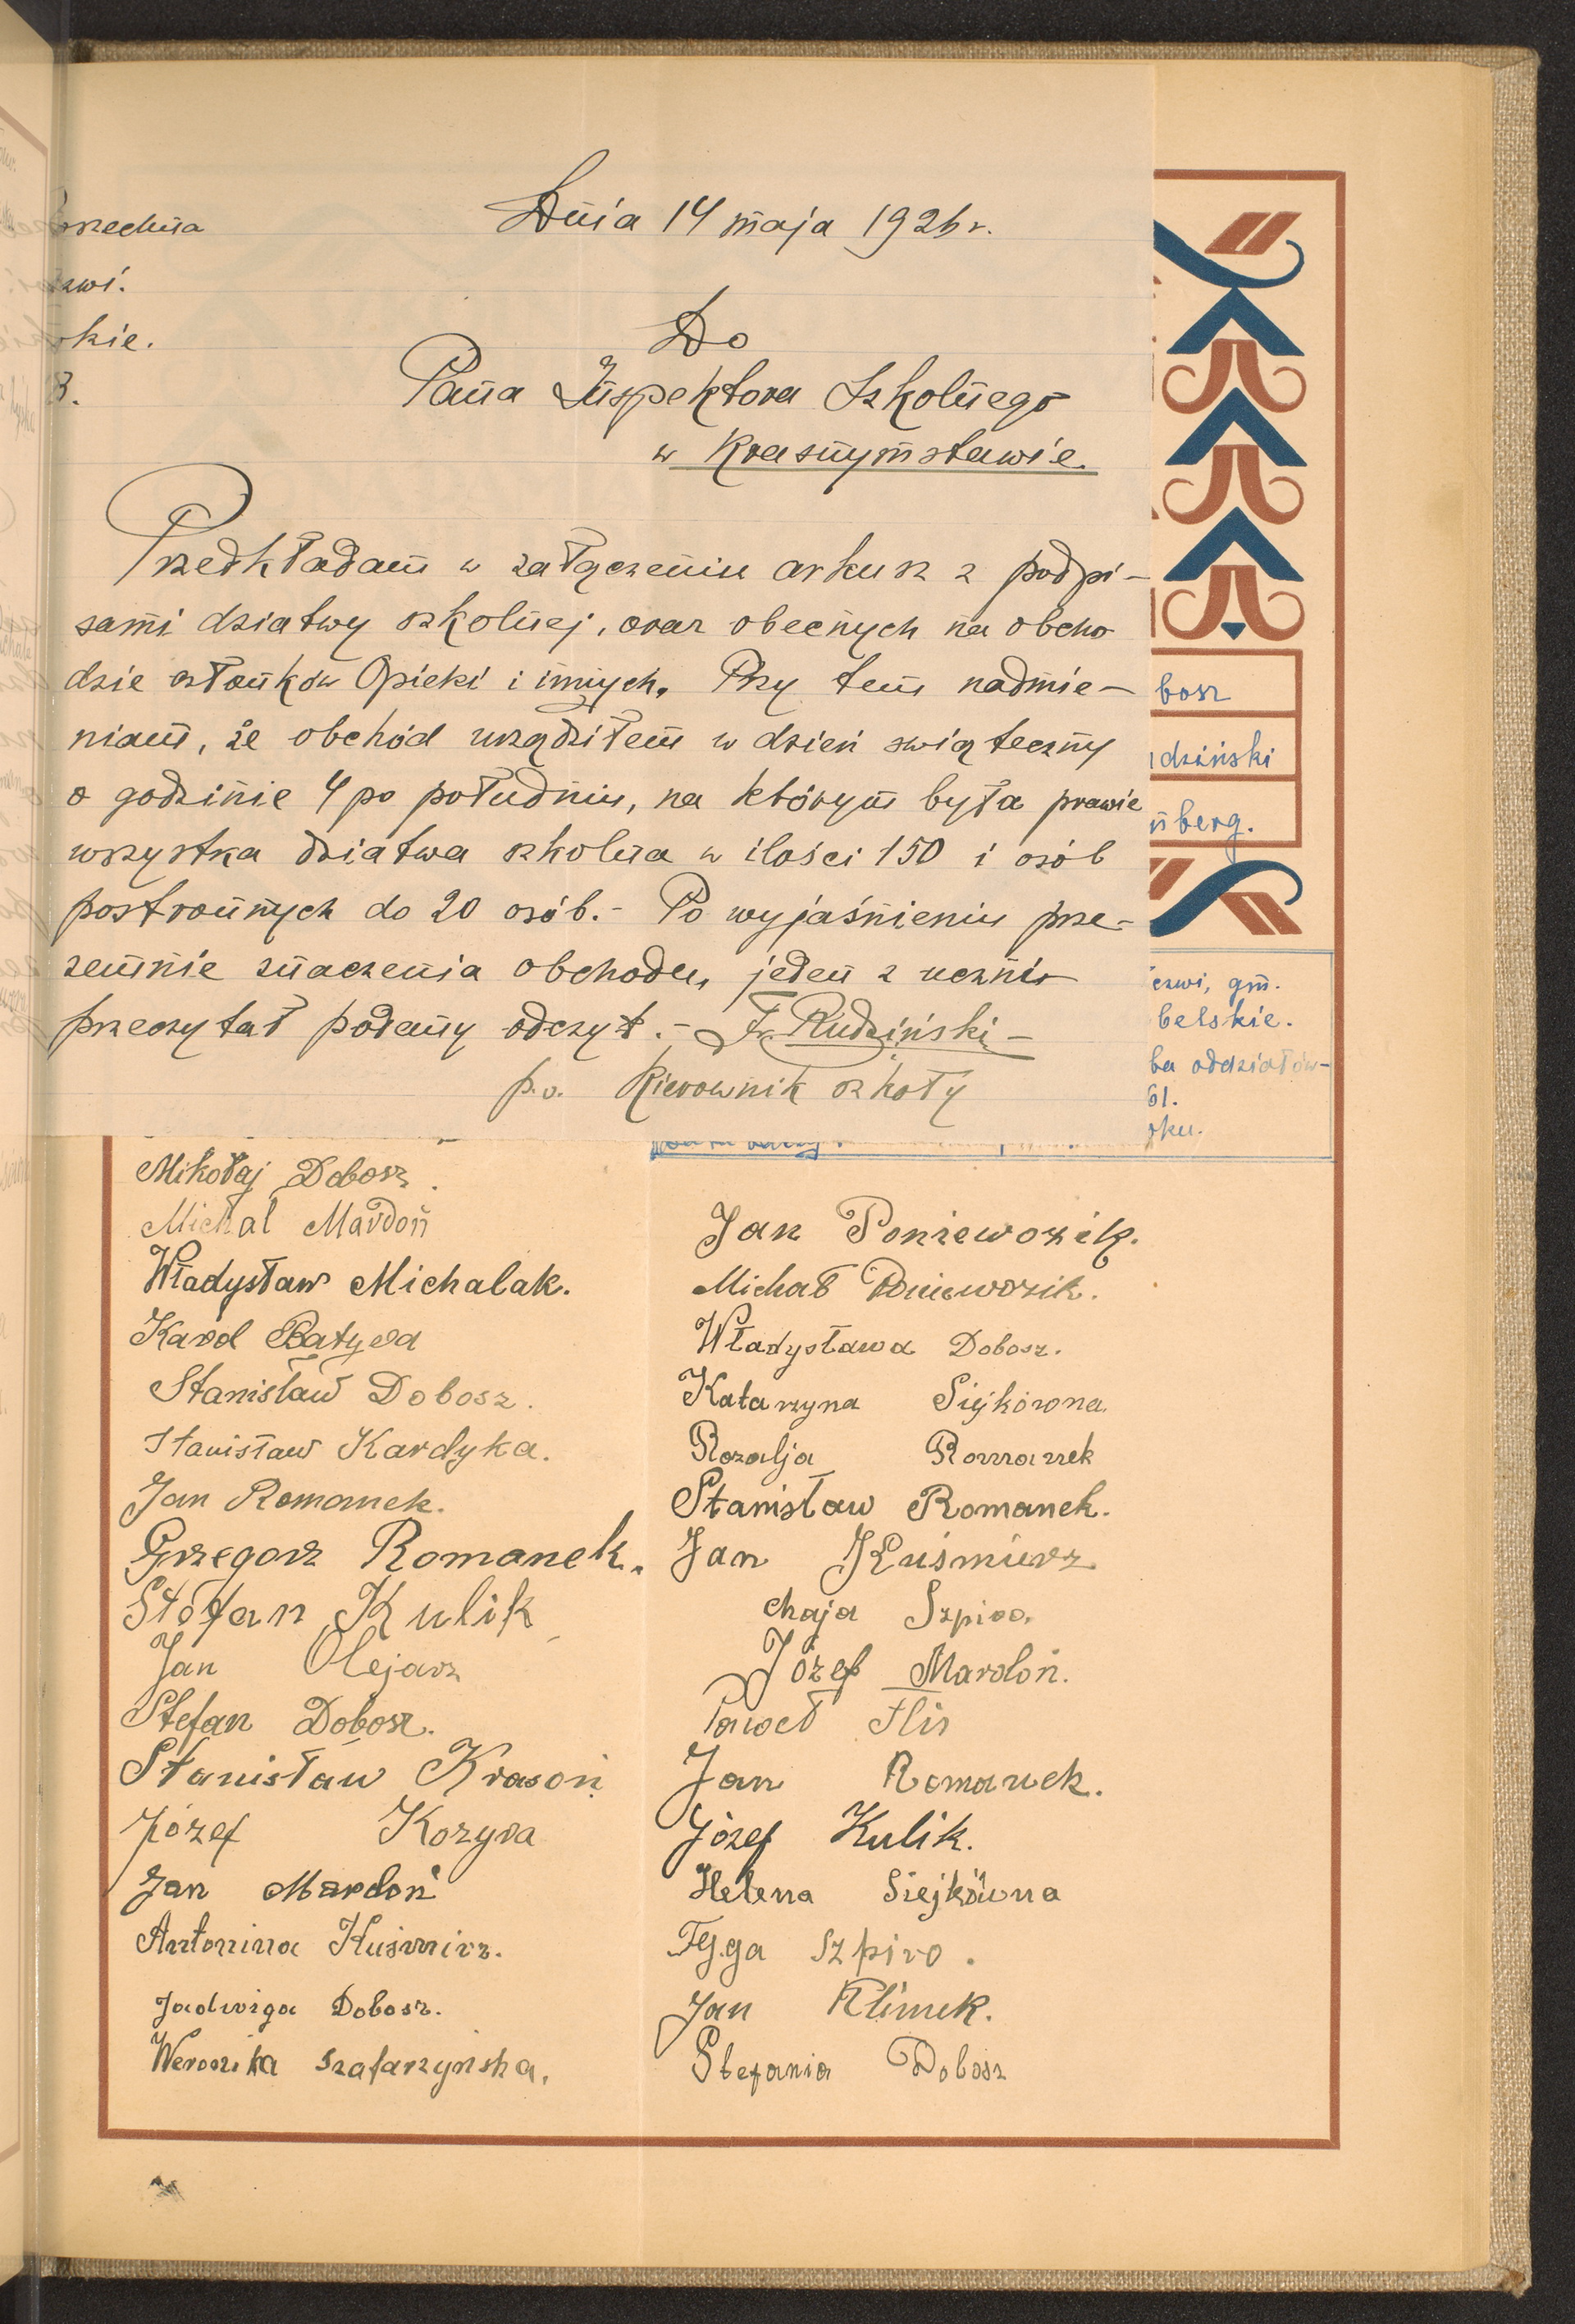 Dnia 14 maja 1926 r.
Do
Pana Inspektora Szkolnego
w Krasnymstawie.
Przedkładam w załączeniu arkusz z podpi-
sami dziatwy szkolnej, oraz obecnych na obcho
dzie członków Opieki i innych. Przy tem nadmie-
niam, że obchód urządziłem w dzień swiąteczny
o godzinie 4 po południu, na którym była prawie
wszystka dziatwa szkolna w ilości 150 i osób
postronnych do 20 osób.- Po wyjaśnieniu prze-
zemnie znaczenia obchodu, jeden z uczni
przeczytał podany odczyt.- Fr. Rudziński -
p.o. Kierownik szkoły
rzechna
zwi.
kie.
3.
bosz
dziński
nberg.
czwi, gm.
belskie.
ba oddziałów-
61.
oku.
Mikołaj Dobosz.
Michał Mardoń
Władysław Michalak.
Karol Batyra
Stanisław Dobosz.
Stanisław Kardyka.
Jan Romanek.
Grzegorz Romanek.
Stefan Kulik
Jan Olejarz
Stefan Dobosz.
Stanisław Krasoń
Józef Kozyra
Jan Mardoń
Antonina Kuśmirz.
Jadwiga Dobosz.
Weronika Szafarzyńska.
Jan Poniewozik.
Michał Poniewozik.
Władysława Dobosz.
Katarzyna Siejkówna.
Rozalja Romanek
Stanisław Romanek.
Jan Kuśmierz
Chaja Szpiro.
Józef Mardoń.
Paweł Flis
Jan Romanek.
Józef Kulik.
Helena Siejkówna
Fejga Szpiro.
Jan Klimek.
Stefania Dobosz